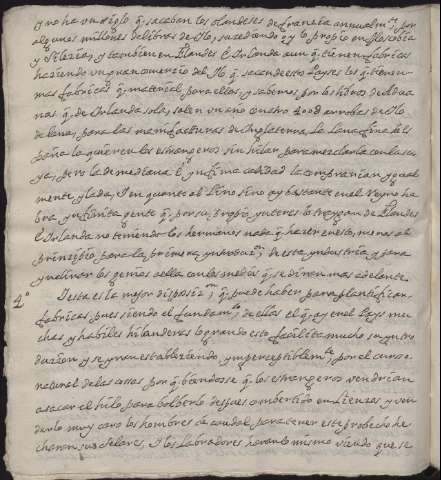 y no ha un siglo q. sacaban los olandeses de francia annualm.te por
algunos millones de libras de Ilo, sucediendo oy lo propio en
y Silesia, y tambien en Flandes e Irlanda aun q. tienen fabricas
haziendo un gran comercio del Ilo q. sacan de estos Payses los q. tienen
mas fabricas q. material para ellos, y sabemos por los libros de Adua
nas q. de Irlanda sola, salen un año con otro 400@ arrobas de Ilo
de lana, para las manifacturas de Inglaterra. La Lana fina de Es
paña la quieren los estrangeros sin hilar para mezclarla con la su
ya, pero la de mediana e ynfima calidad la comprarian ygual
mente ylada, I en quanto al Lino sino ay bastante en el Reyno ha
bra ynfinita gente q. por su propio ynteres lo traygan de Flandes
e Irlanda no teniendo los hermanos nada q. hacer en esto, menos al
principio para la primera ynstrucc.on de esta yndustria, y para
ynclinar los genios a ella con los medios q. se diran mas adelante.
4.º I esta es la mejor disposiz.on q. puede haber para plantificar
fabricas pues siendo el fundam.to de ellas el q. ay en el Pays mu
chas y habiles hilanderas logrando esto facilita mucho su yntro
duzion y se yran estableziendo, ymperceptiblem.te por el curso
natural de las cosas por q. biendose q. los estrangeros vendrian
a sacar el hilo para bolberlo despues combertido en Lienzos y ven
derlo muy caro los hombres de caudal, para tener este probecho he
charan sus telares, I los Labradores haran lo mismo viendo que se